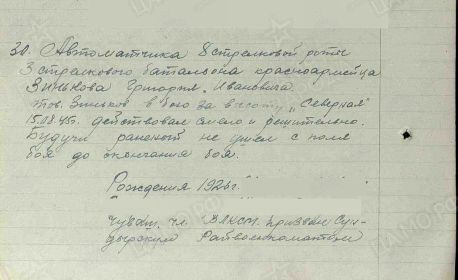 30. Автоматчика 8 стрелковой роты
3 стрелкового батальона красноармейца
Зинькова Григория Ивановича.
тов. Зиньков в бою за высоту „Северная"
15.08.45г. действовал смело и решительно.
Будучи раненой не ушел с поля
боя до окончания боя.
Рождения 1926г.
чуваш, чл. ВЛКСМ. призван Сун-
дырским Райвоенкоматом